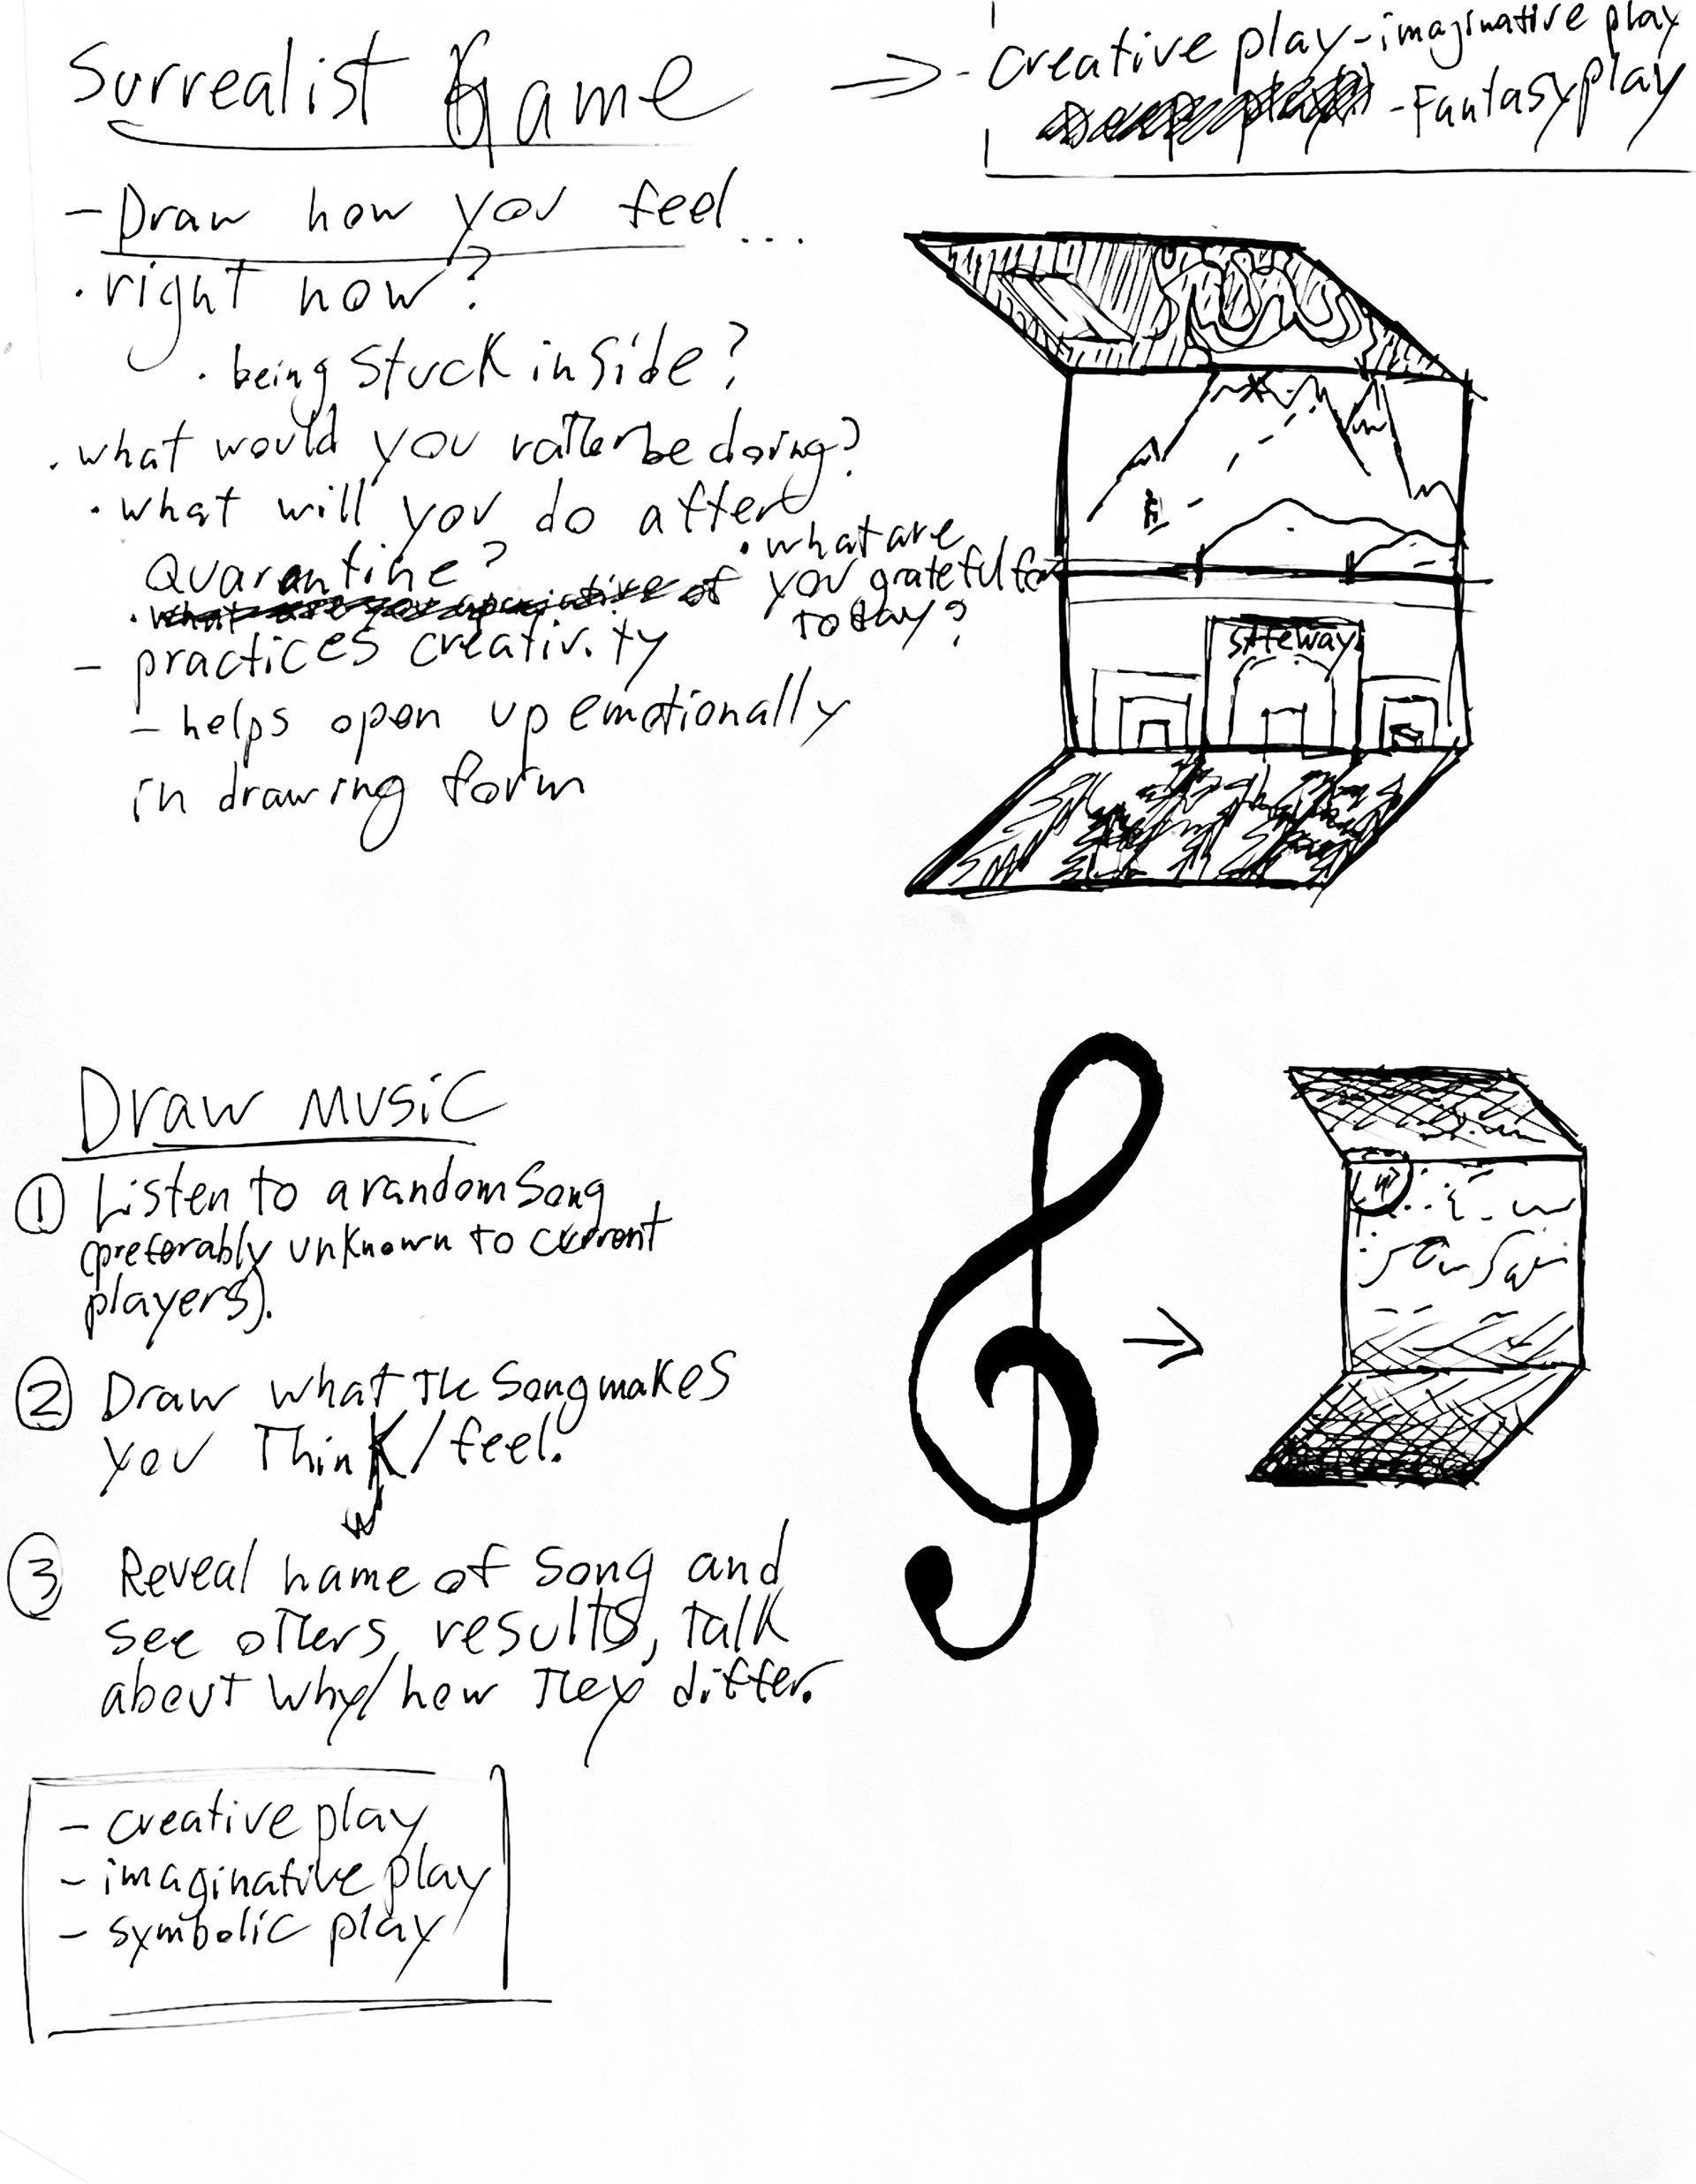 Surrealist Game
→ - creative play - imaginative play
- Fantasy play
- Draw how you feel...
· right now?
· being stuck inside?
· what would you rather be doing?
· what will you do after
Quarantine?
· what are
you grateful for
today?
of
- practices creativity
- helps open up emotionally
in drawing form
SAFEWAY
Draw Music
① Listen to a random song
(preferably unknown to current
players).
② Draw what the song makes
you Think/feel.
③ Reveal name of song and
see others results, talk
about why/how they differ.
- creative play
- imaginative play
- symbolic play